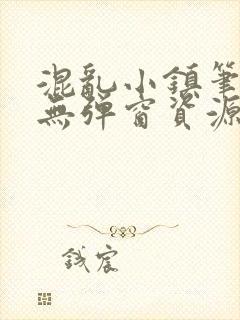 混亂小鎮筆
無彈窗資源
鋮宸